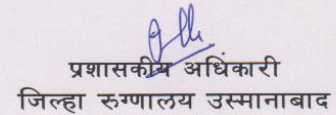 प्रशासकीय अधिकारी
जिल्हा रुग्णालय उस्मानाबाद